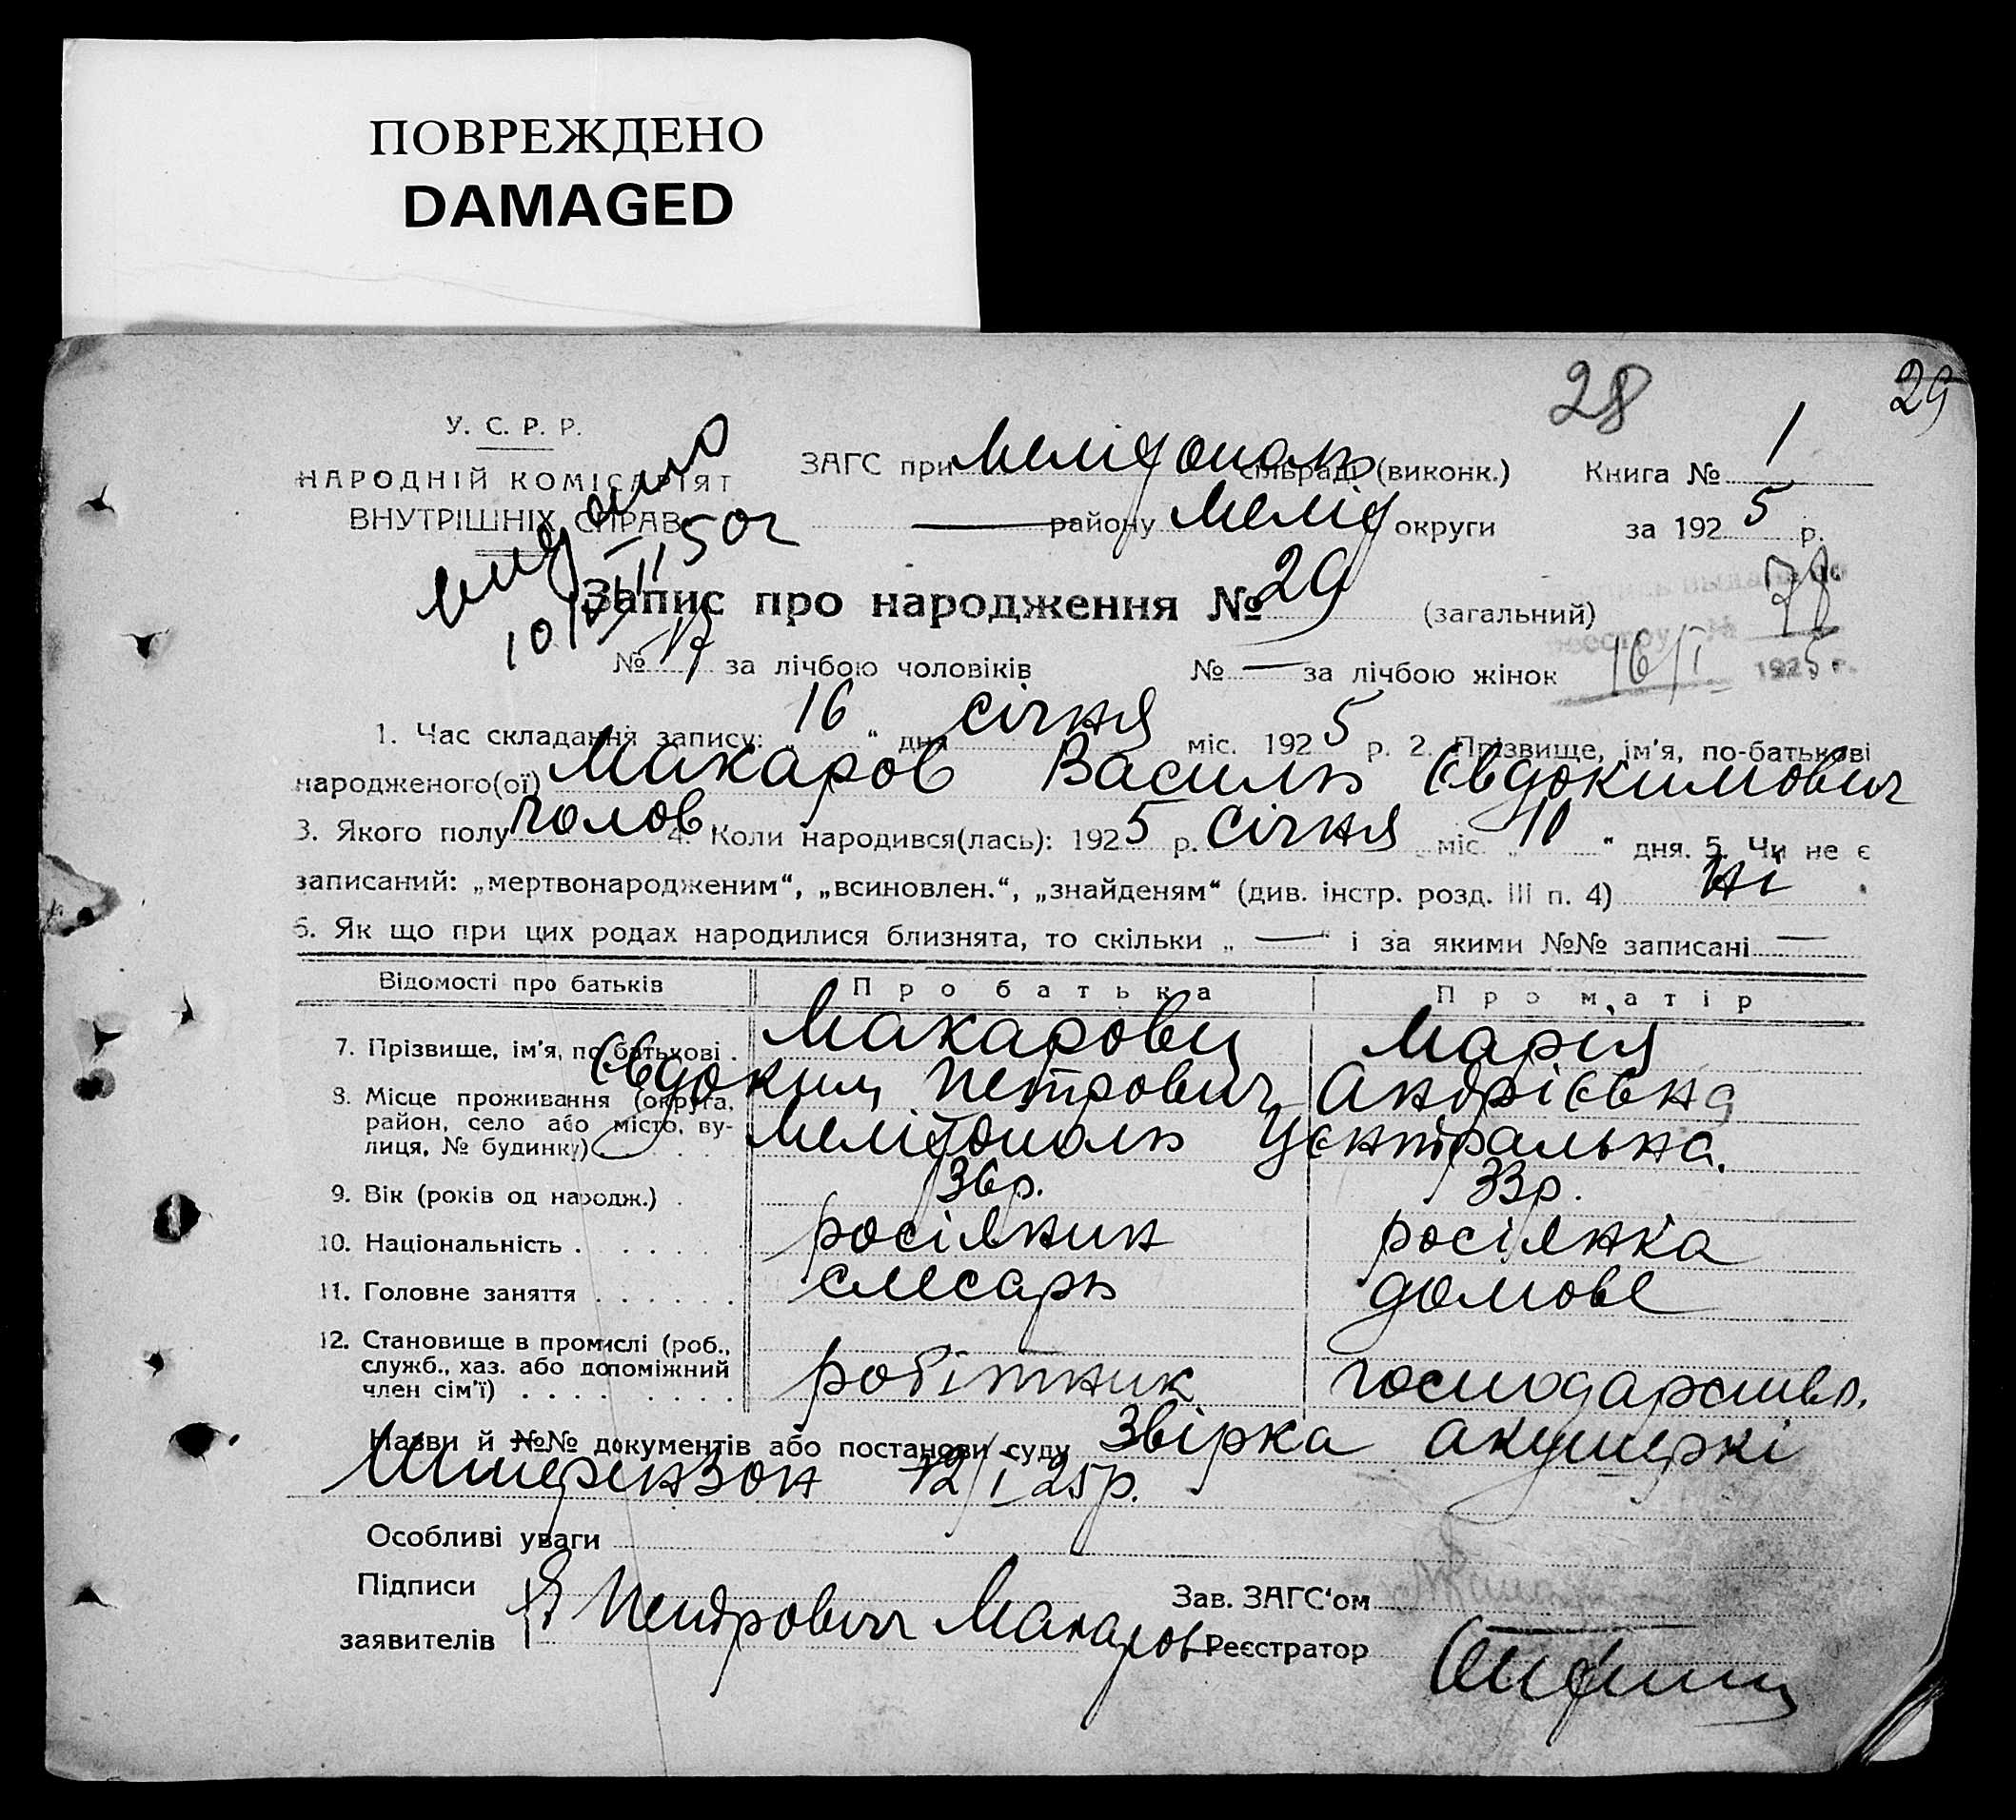 ПОВРЕЖДЕНО
DAMAGED
28
29
У. С. Р. Р.
НАРОДНІЙ КОМІСАРІЯТ
ВНУТРІШНІХ СПРАВ
ЗАГС при Мелітополь сільраді (виконк.) Книга № 1
— району Меліт округи за 1925 р.
Запис про народження № 29 (загальний)
78
№ 17 за лічбою чоловіків № — за лічбою жінок
16/I 1925 г.
1. Час складання запису: „16“ дня січня міс. 1925 р. 2. Прізвище, ім'я, по-батькові
народженого(ої) Макаров Василь Євдокимович
3. Якого полу чолов. 4. Коли народився(лась): 1925 р. січня міс. „10“ дня. 5. Чи не є
записаний: „мертвонародженим“, „всиновлен.“, „знайденям“ (див. інстр. розд. III п. 4) ні.
6. Як що при цих родах народилися близнята, то скільки „—“ і за якими №№ записані —
Відомості про батьків Про батька Про матір
7. Прізвище, ім'я, по батькові . Макарови Марія
Євдоким Петрович Андрієвна
8. Місце проживання (округа,
район, село або місто, вулиця, № будинку) Мелітополь Центральна.
9. Вік (років од народж.) . 36р. 33р.
10. Національність . . . . . росіянин росіянка
11. Головне заняття . . . . . . слесарь домове
12. Становище в промислі (роб.,
служб., хаз. або допоміжний
член сім'ї) . . . . робітник господарство.
Назви й №№ документів або постанови суду Звірка акушеркі
12/I 25р.
Особливі уваги
Підписи Зав. ЗАГС'ом
Петрович Макаров
заявителів Реєстратор